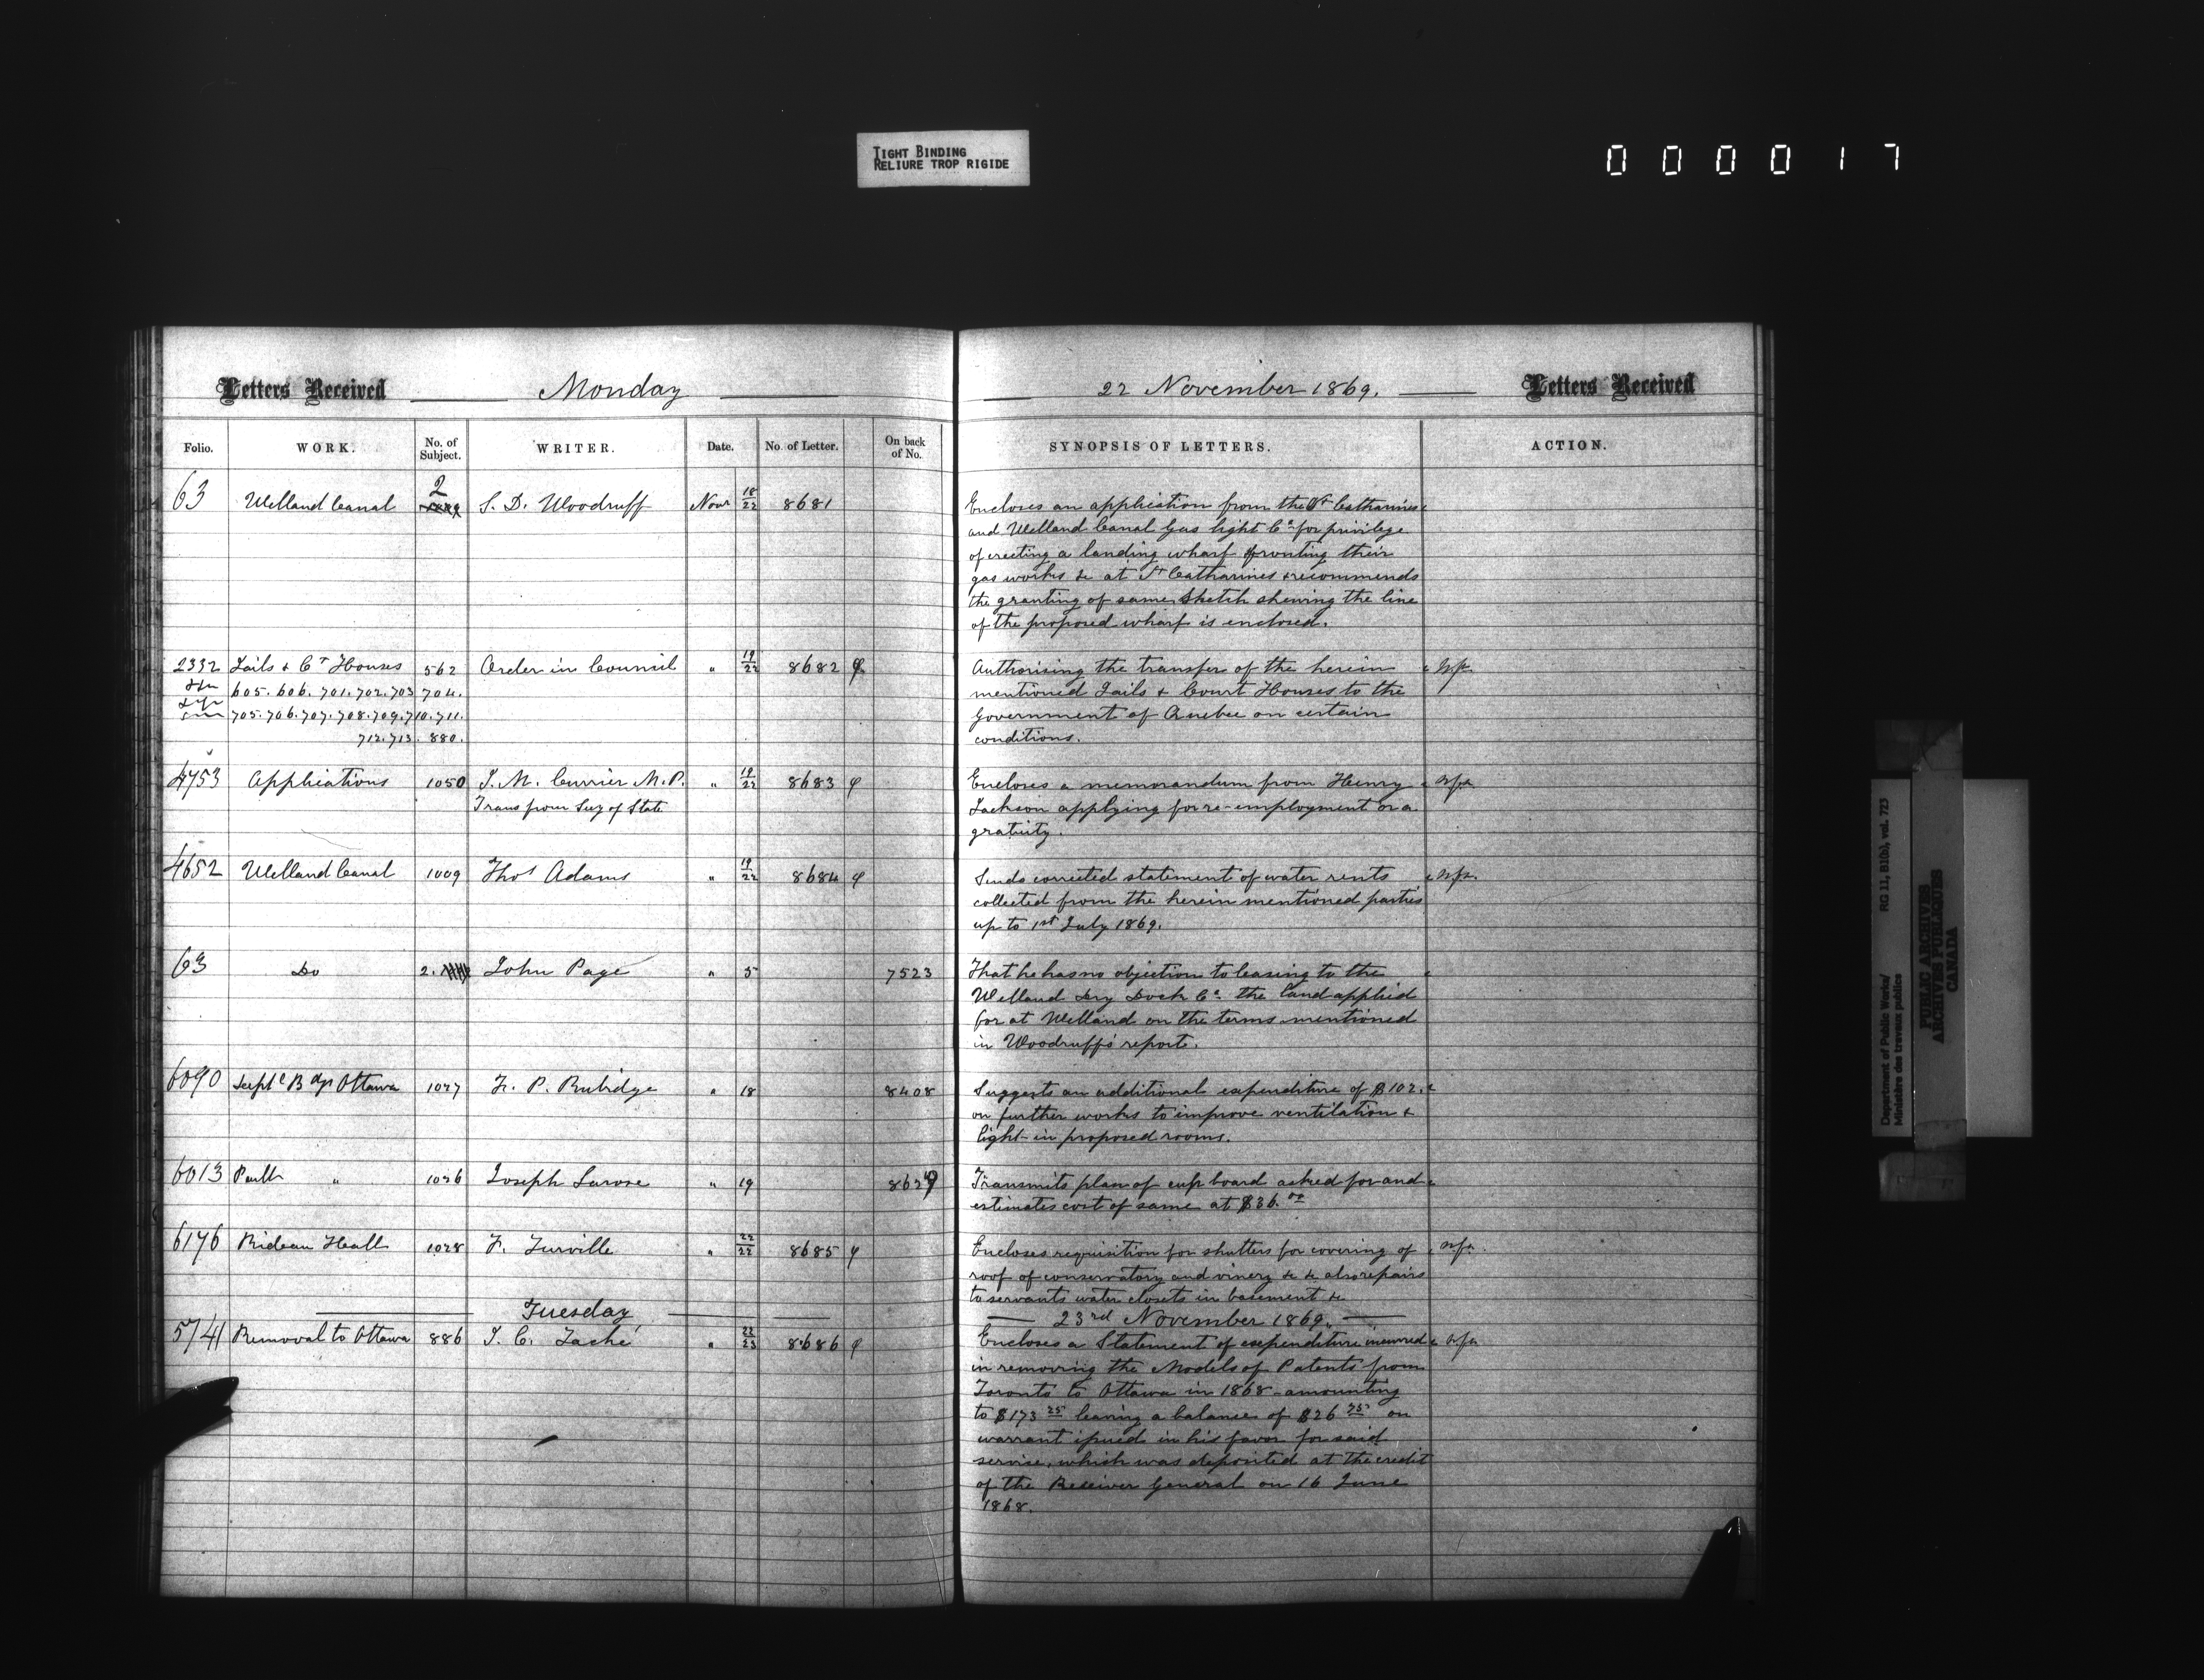 TIGHT BINDING
RELIURE TROP RIGIDE
0 0 0 0 1 7
Letters Received Monday 22 November 1869. Letters Received
Folio. WORK. No. of Subject. WRITER. Date. No. of Letter. On back of No. SYNOPSIS OF LETTERS. ACTION.
63 Welland Canal 2 S. D. Woodruff Novr 18/22 8681 Encloses an application from the St Catharines
and Welland Canal Gas light Co for privilege
of erecting a landing wharf fronting their
gas works &c at St Catharines & recommends
the granting of same, Sketch shewing the line
of the proposed wharf is enclosed.
2332 Jails & Ct Houses 562 Order in Council " 19/22 8682 Authorising the transfer of the herein
605. 606. 701. 702. 703 704. mentioned Jails & Court Houses to the
705. 706. 707. 708. 709. 710. 711. Government of Quebec on certain
712. 713. 880. conditions.
4753 Applications 1050 J. M. Currier M.P. " 19/22 8683 Encloses a memorandum from Henry
Trans from Secy of State Jackson applying for re-employment or a
gratuity.
4652 Welland Canal 1009 Thos Adams " 19/22 8684 Sends corrected statement of water rents
collected from the herein mentioned parties
up to 1st July 1869.
63 Do 2. John Page " 5 7523 That he has no objection to leasing to the
Welland Dry Dock Co the land applied
for at Welland on the terms mentioned
in Woodruff's report.
6090 Deptl Bdgs Ottawa 1027 F. P. Rubidge " 18 8408 Suggests an additional expenditure of $102.
on further works to improve ventilation &
light in proposed rooms.
6013 Parlt " 1026 Joseph Larose " 19 Transmits plan of cup board asked for and
estimates cost of same at $36.00
6176 Rideau Hall 1028 F. Turville " 22/22 8685 Encloses requisition for shutters for covering of
roof of conservatory and vinery &c &c also repairs
to servants water closets in basement &c
Tuesday 23rd November 1869.
5741 Removal to Ottawa 886 J. C. Taché " 22/23 8686 Encloses a Statement of expenditure incurred
in removing the Models of Patents from
Toronto to Ottawa in 1868 amounting
to $173 25 leaving a balance of $26 75 on
warrant issued in his favor for said
service, which was deposited at the credit
of the Receiver General on 16 June
1868.
Department of Public Works/ RG 11, B1(b), vol. 723
Ministère des travaux publics
PUBLIC ARCHIVES
ARCHIVES PUBLIQUES
CANADA